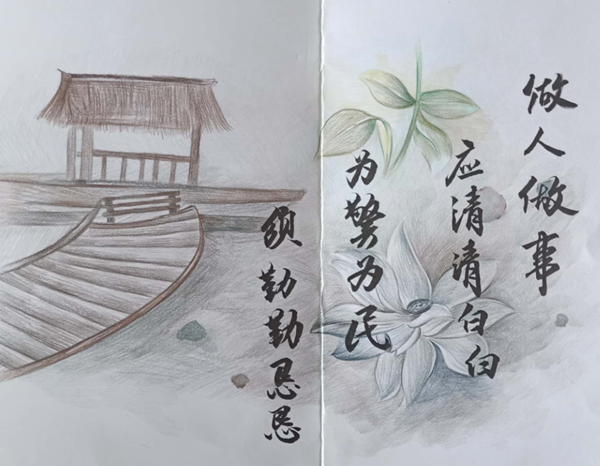 做人做事
应清清白白
为警为民
须勤勤恳恳